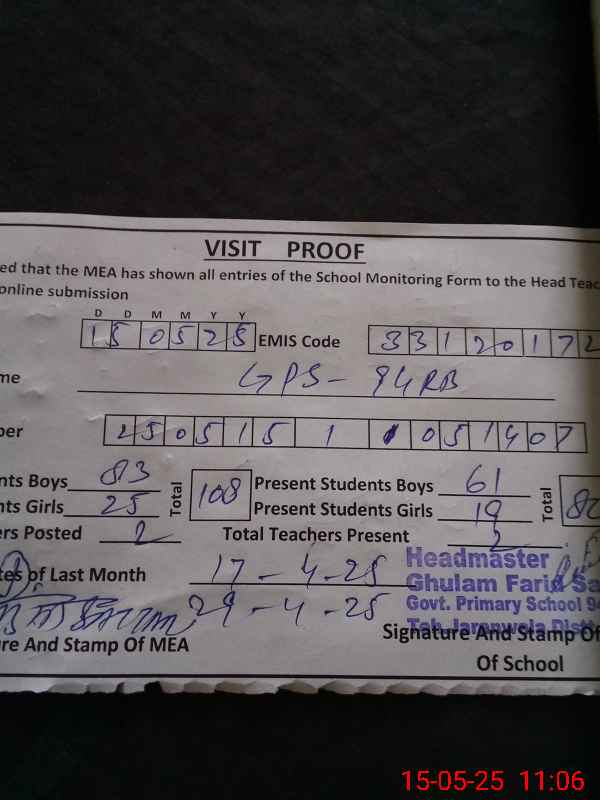 VISIT PROOF
ed that the MEA has shown all entries of the School Monitoring Form to the Head Teac
online submission
D D M M Y Y
15 05 25 EMIS Code 33120172
me GPS - 94RB
ber 250515 1 1051407
nts Boys 83 Total 108 Present Students Boys 61 Total 80
nts Girls 25 Present Students Girls 19
ers Posted 2 Total Teachers Present 2
tes of Last Month 17-4-25
29-4-25
Headmaster
Ghulam Farid Sa
Govt. Primary School 94
Teh Jaranwala Distt
re And Stamp Of MEA Signature And Stamp Of
Of School
15-05-25 11:06